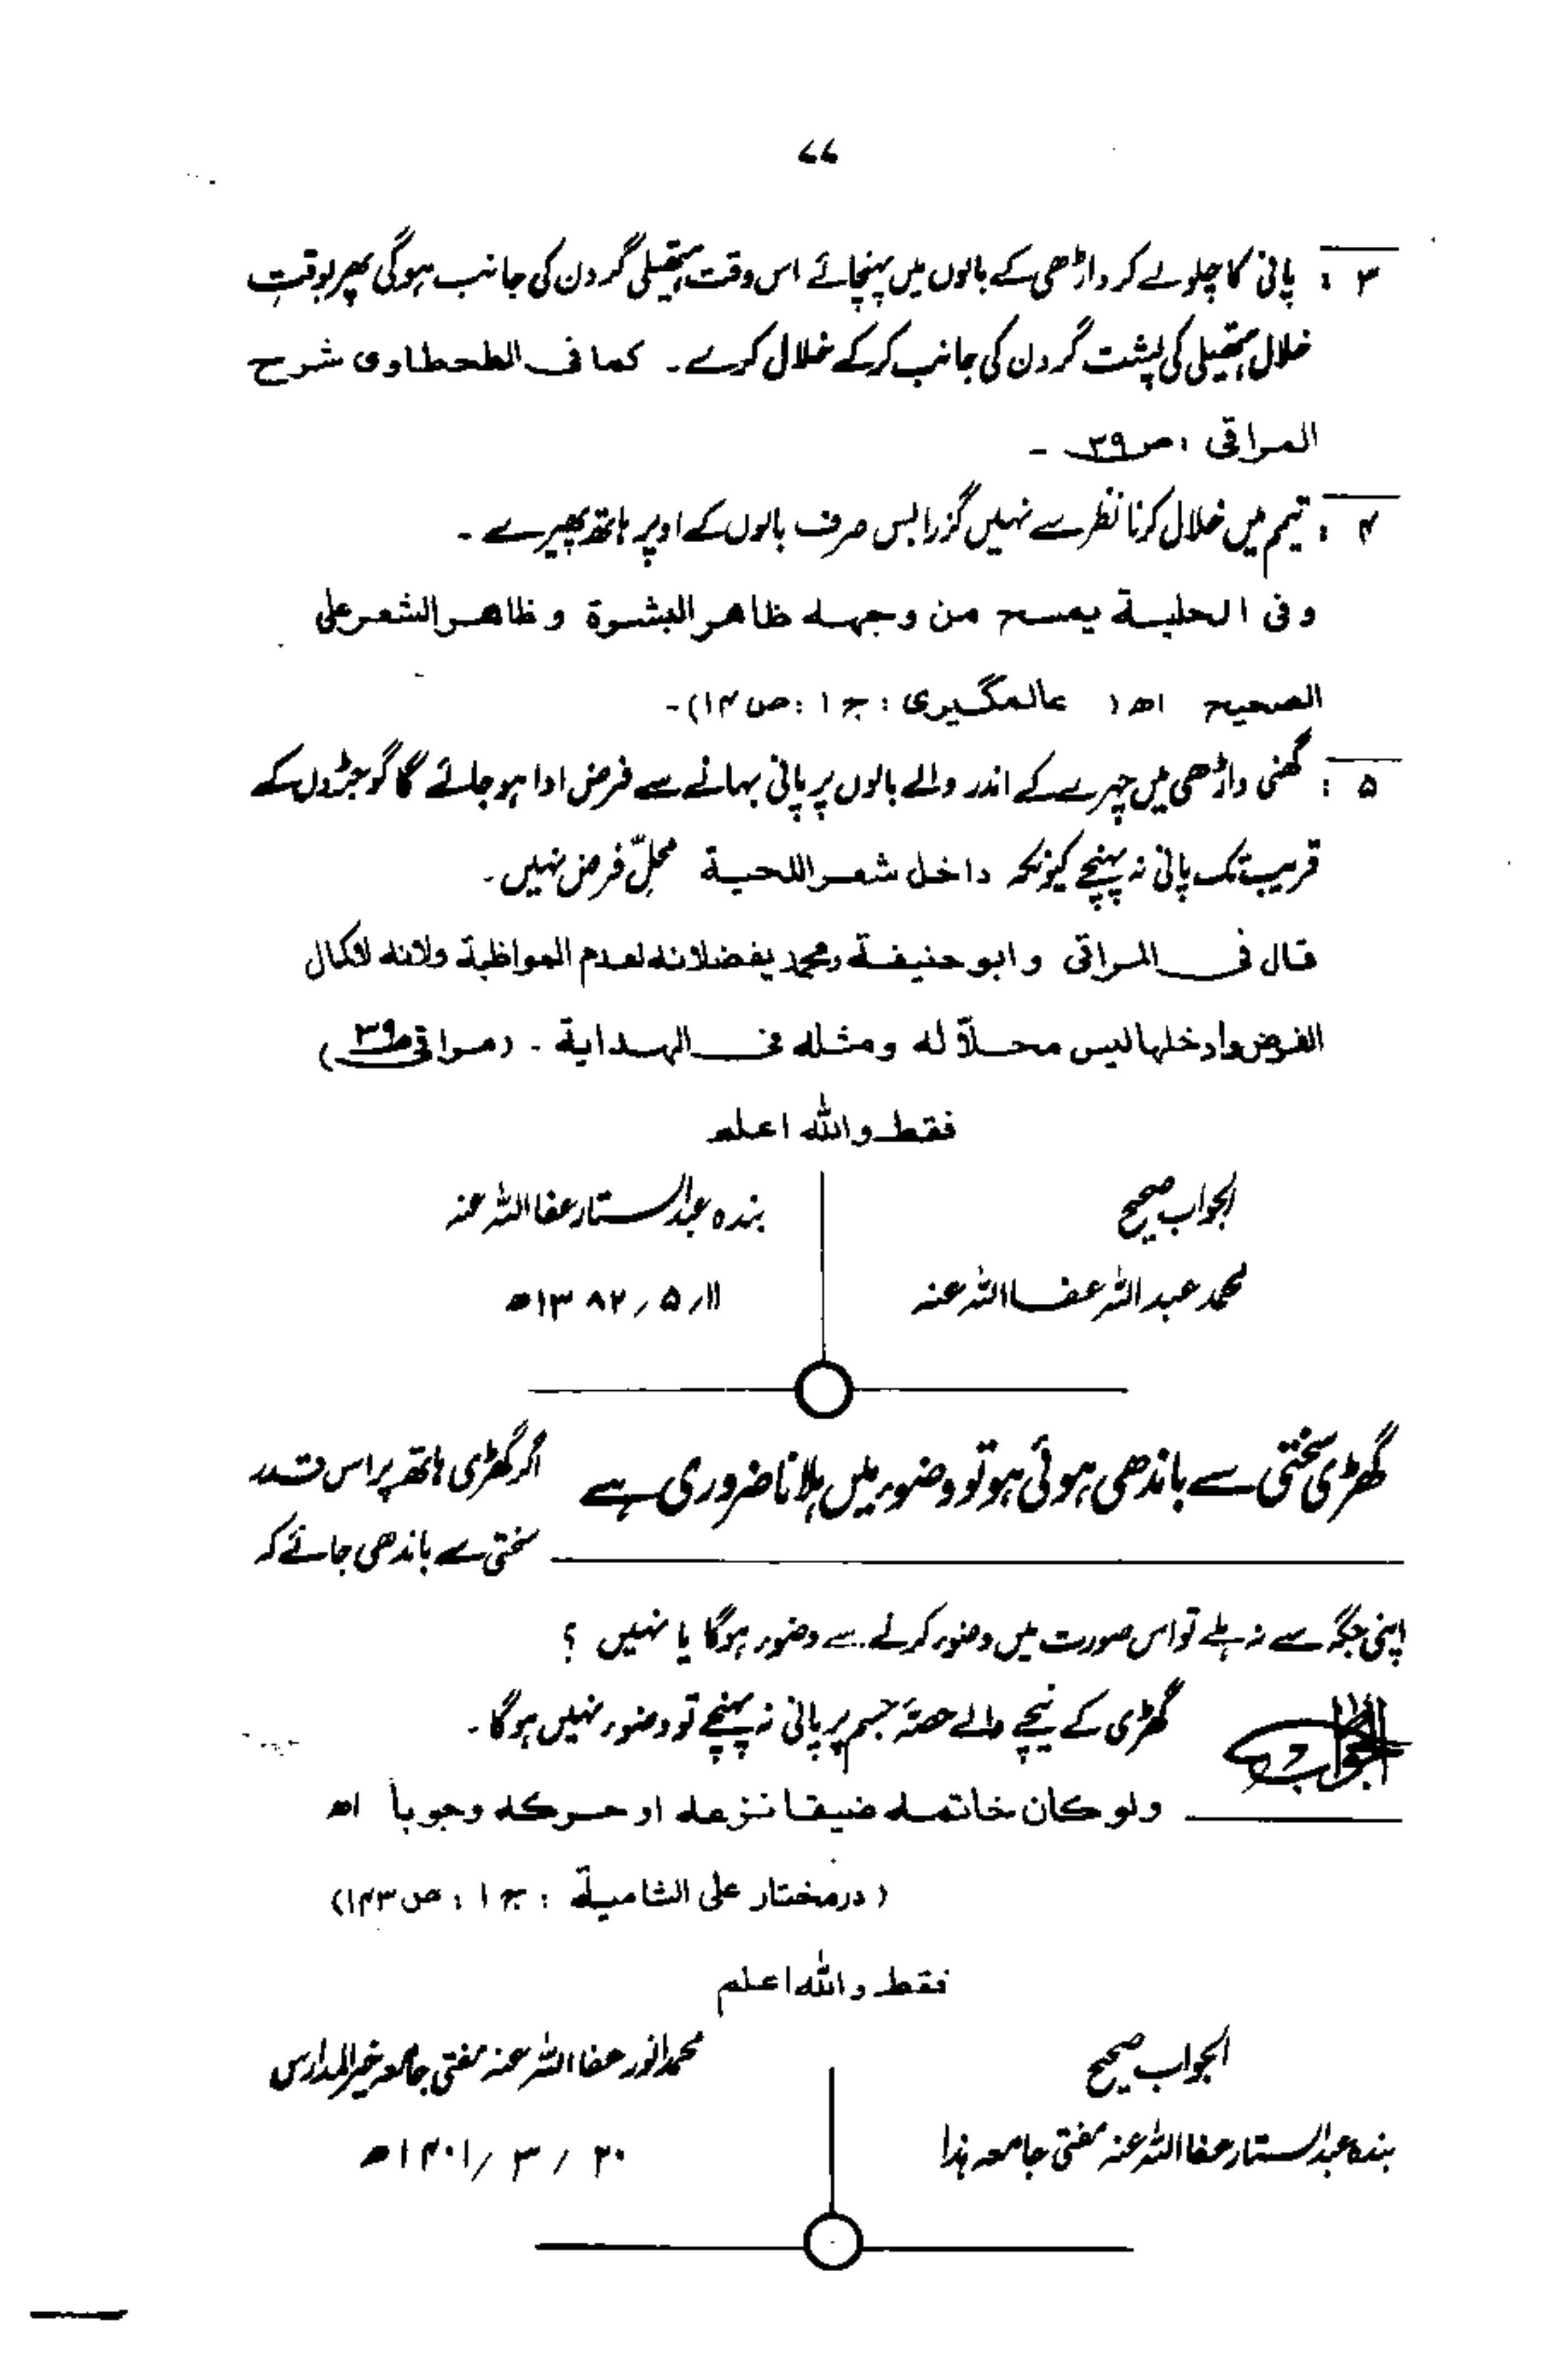 ۷۷
۳ : پانی کا چلو لے کر داڑھی کے بالوں میں پہنچائے اس وقت ہتھیلی گردن کی جانب ہوگی پھر بوقتِ
خلال ہتھیلی کی پشت گردن کی جانب کرکے خلال کرے۔ کما فی الطحطاوی شرح
المراقی : ص ۳۹ ۔
۴ : تیمم میں خلال کرنا نظر سے نہیں گزرا بس صرف بالوں کے اوپر ہاتھ پھیرے ۔
وفی الحلیة یمسح من وجہه ظاهر البشرة و ظاهر الشعر علی
الصحیح اھ ( عالمگیری : ج ۱ : ص ۱۴)۔
۵ : گھنی داڑھی میں چہرے کے اندر والے بالوں پر پانی بہانے سے فرض ادا ہو جائے گا گو جڑوں کے
قریب تک پانی نہ پہنچے کیونکہ داخل شعر اللحیة محلِّ فرض نہیں۔
قال فی المراقی و ابو حنیفة و محمد یفضلانه لعدم المواظبة ولانه لاکمال
الفرض و ادخلها لیس محلاً له ومثله فی الهدایة ۔ (مراقی ص ۳۹)
فقط والله اعلم
الجواب صحیح
محمد عبد اللہ عفا اللہ عنہ
بندہ عبدالستار عفا اللہ عنہ
۱۱؍ ۵؍ ۱۳۸۲ھ
گھڑی سختی سے باندھی ہوئی ہو تو وضوء میں ہلانا ضروری ہے
اگر گھڑی ہاتھ پر اس قدر
سختی سے باندھی جائے کہ
اپنی جگہ سے نہ ہلے تو اس صورت میں وضوء کرنے سے وضوء ہوگا یا نہیں ؟
الجواب
گھڑی کے نیچے والے حصۂ جسم پر پانی نہ پہنچے تو وضوء نہیں ہوگا۔
ولو کان خاتمه ضیقا نزعه او حرکه وجوباً اھ
( درمختار علی الشامیة : ج ۱ : ص ۱۴۳)
فقط والله اعلم
الجواب صحیح
بندہ عبدالستار عفا اللہ عنہ مفتی جامعہ ہذا
محمد انور عفا اللہ عنہ مفتی جامعہ خیر المدارس
۲۰ ؍ ۳ ؍ ۱۴۰۱ھ